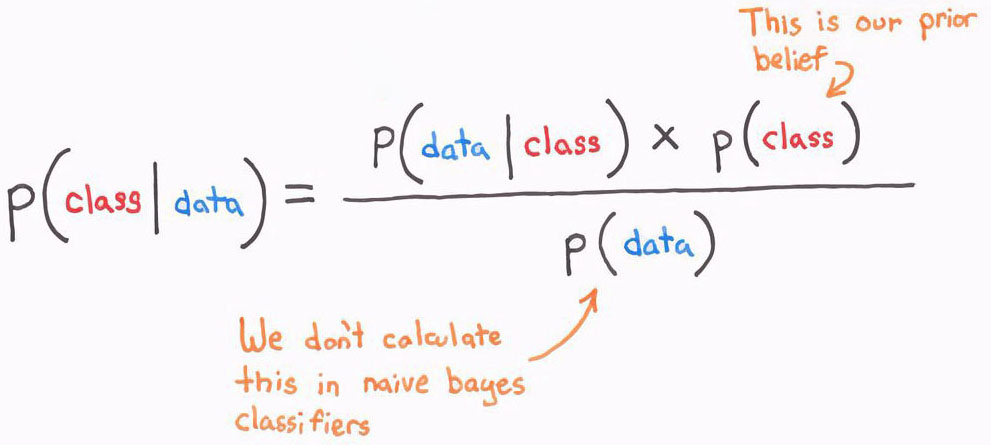 This is our prior
belief
p(class | data) = p(data | class) × p(class)
p(data)
We don't calculate
this in naive bayes
classifiers